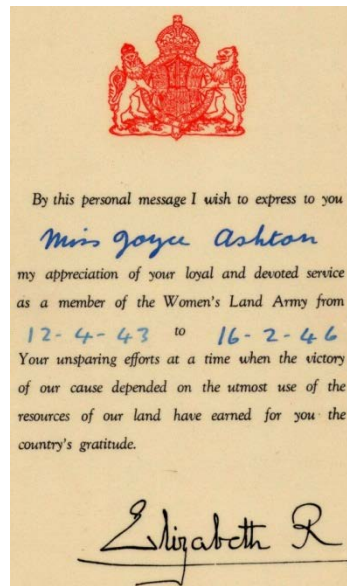 By this personal message I wish to express to you
Miss Joyce Ashton
my appreciation of your loyal and devoted service
as a member of the Women's Land Army from
12-4-43 to 16-2-46
Your unsparing efforts at a time when the victory
of our cause depended on the utmost use of the
resources of our land have earned for you the
country's gratitude.
Elizabeth R